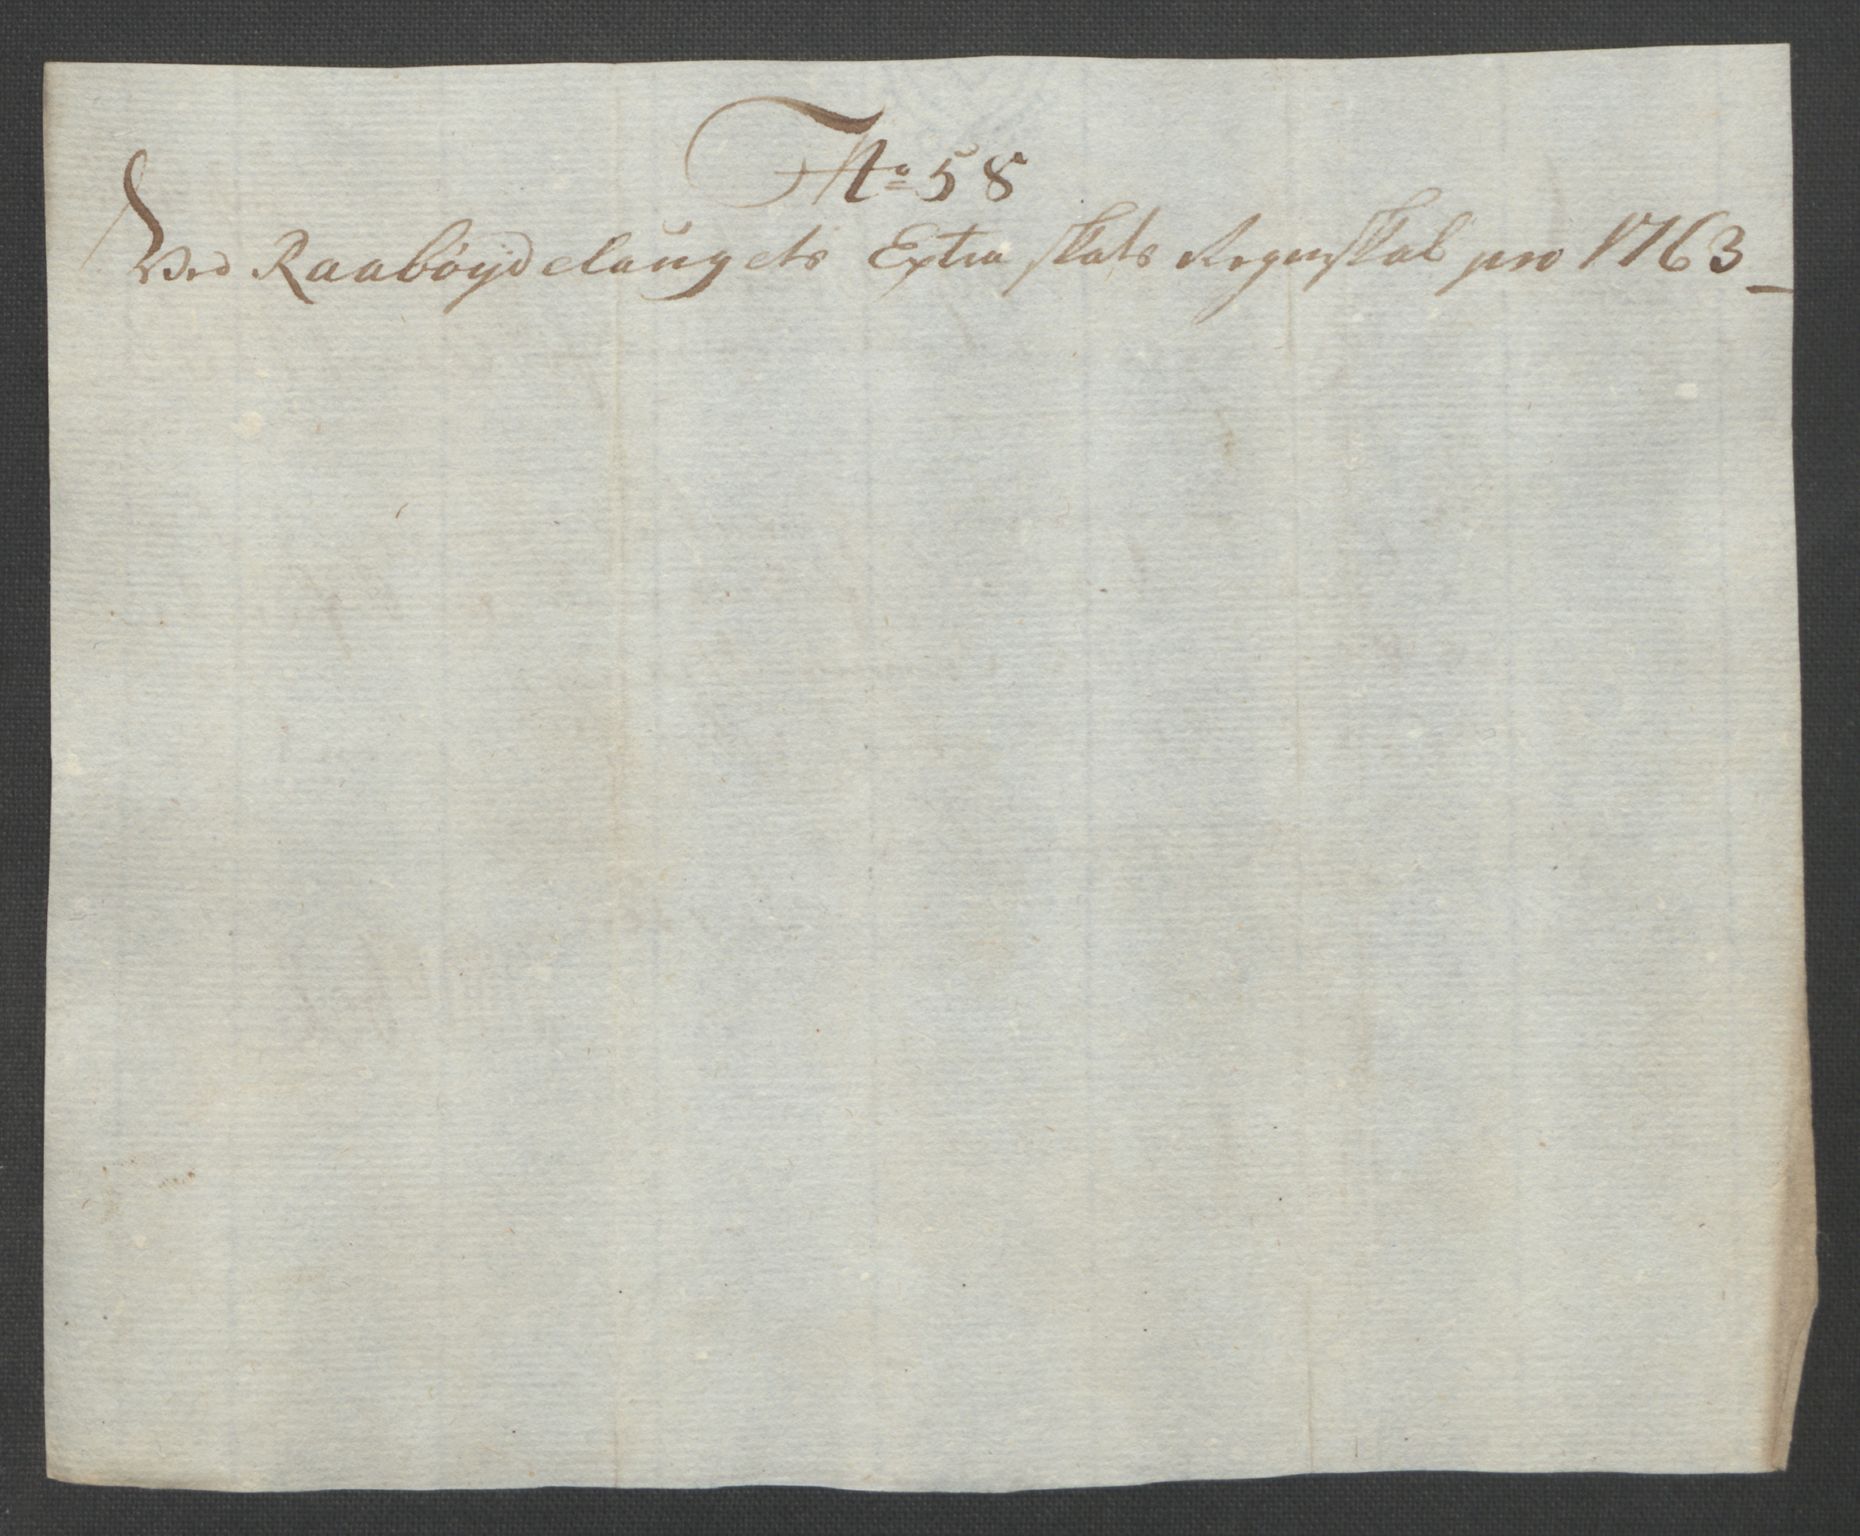 No 58
Ved Raabøydelaugets Extra skats Regenskab pro 1763